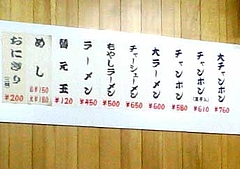 大チャンポン
￥760
チャンポン
￥610
チャンポン
￥560
大ラーメン
￥600
チャーシューメン
￥650
もやしラーメン
￥500
ラーメン
￥450
替え玉
￥120
めし
￥150
￥180
おにぎり
￥200